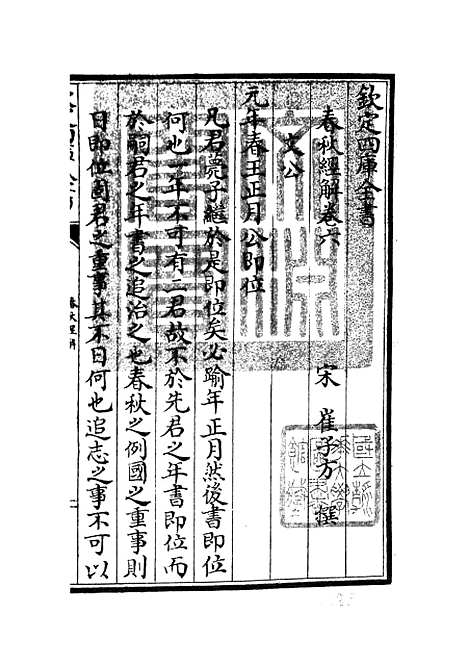 欽定四庫全書
春秋經解卷六
宋 崔子方 撰
文公
元年春王正月公即位
凡君薨子繼於是即位矣必踰年正月然後書即位
何也一年不可有二君故不於先君之年書即位而
於嗣君之年書之追治之也春秋之例國之重事則
日即位國君之重事其不日何也追志之事不可以
春秋經解